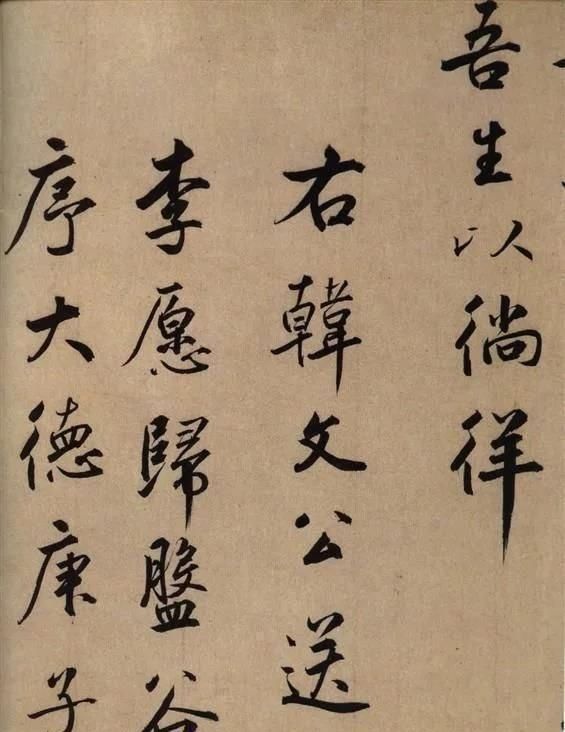 吾生以徜徉
右韓文公送
李愿歸盤谷
序大德庚子